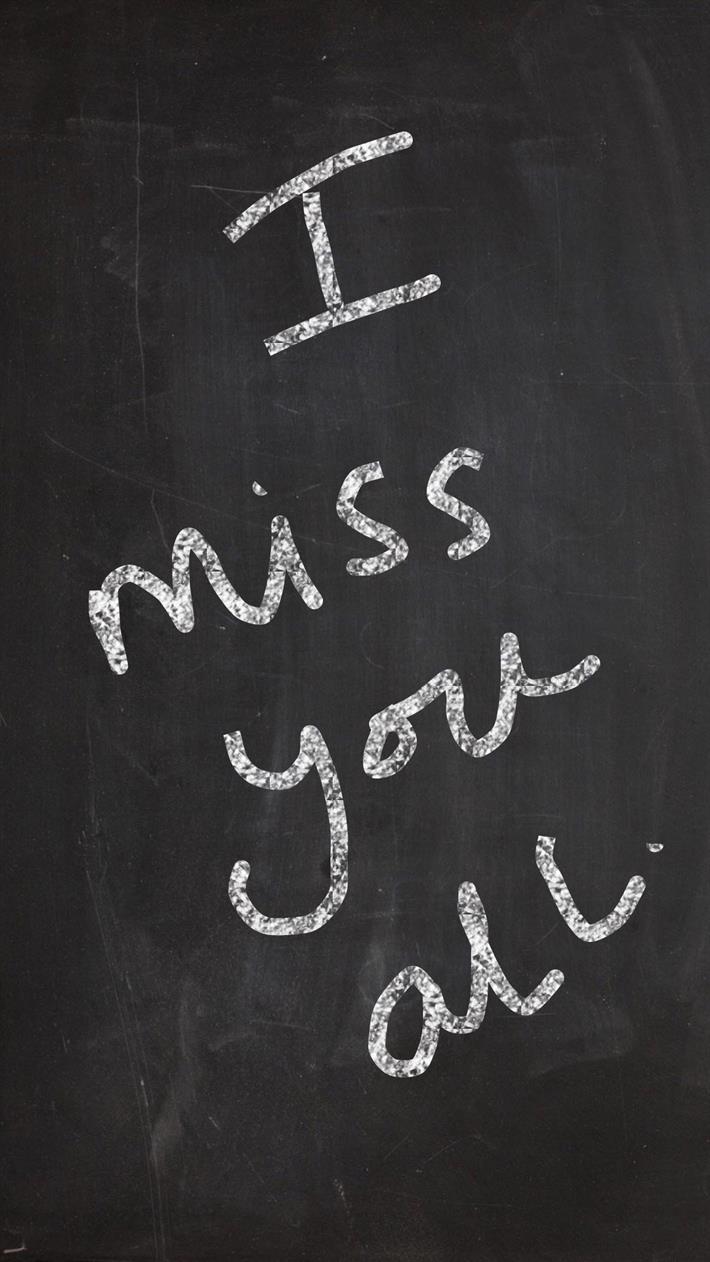 I
miss
you
all.